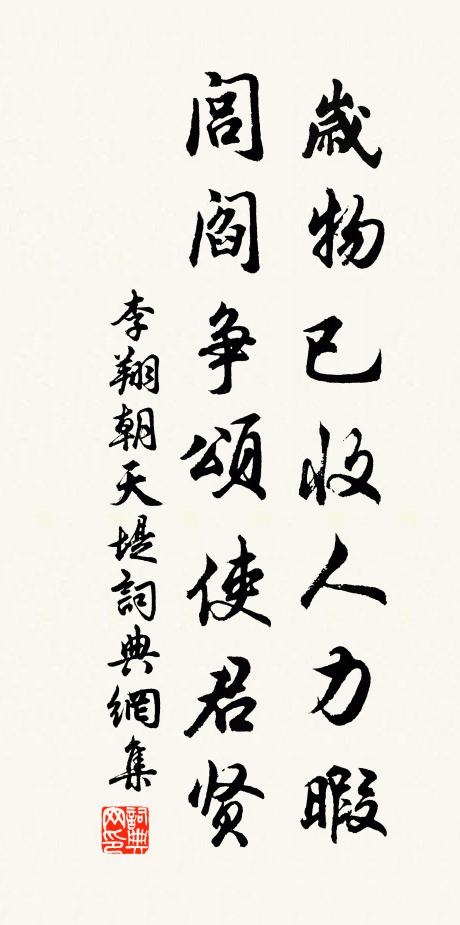 歲物已收人力暇
閭閻争頌使君贤
李翔朝天堤詞典網集
詞典网印